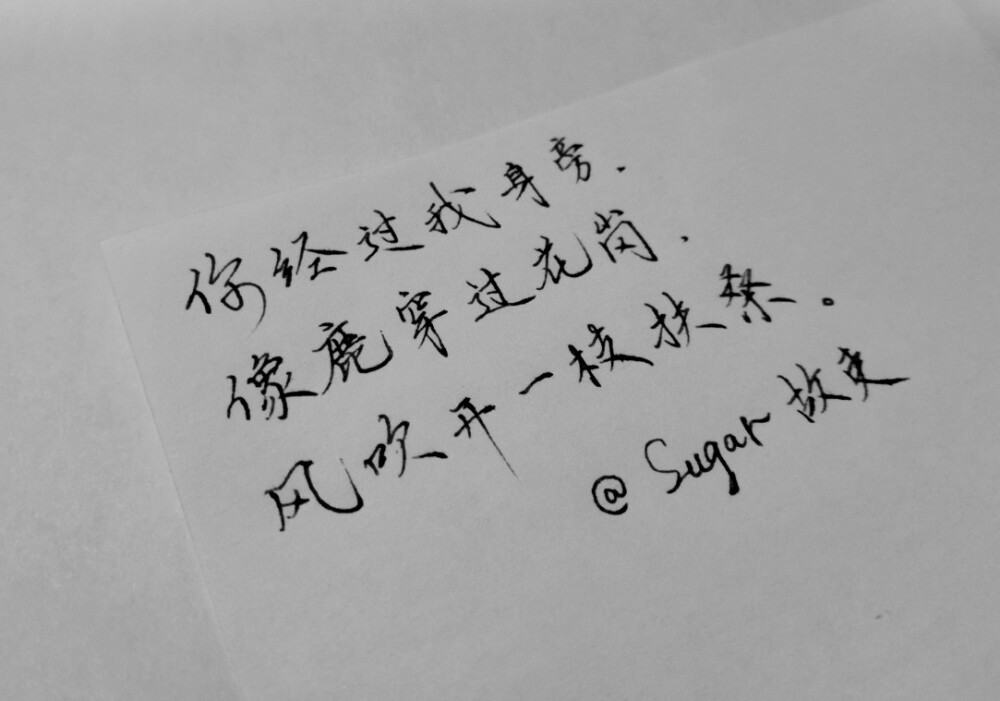 你经过我身旁.
像鹿穿过花岗.
风吹开一枝扶桑。
@Sugar故夹